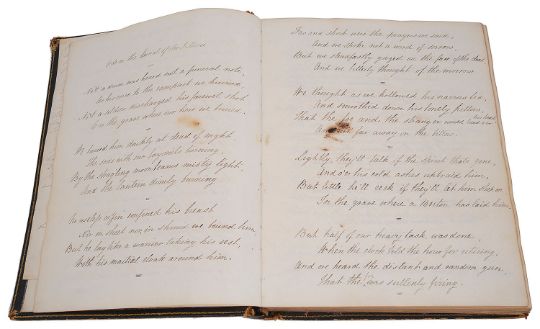 on the burial of Sir
Not a drum was heard not a funeral note,
As his corse to the rampart we hurried,
Not a soldier discharged his farewell shot
O'er the grave where our hero we buried.
We buried him darkly at dead of night
The sods with our bayonets turning,
By the struggling moonbeams misty light
And the lantern dimly burning
No useless coffin confined his breast
Nor in sheet nor in shroud we bound him
But he lay like a warrior taking his rest,
With his martial cloak around him.
Few and short were the prayers we said,
And we spoke not a word of sorrow,
But we steadfastly gazed on the face of the dead
And we bitterly thought of the morrow
We thought as we hollowed his narrow bed,
And smoothed down his lonely pillow,
That the foe and the stranger would tread o'er his head
And far away on the billow.
Lightly, they'll talk of the spirit that's gone,
And o'er his cold ashes upbraid him,
But little he'll reck if they'll let him sleep on
In the grave where a Briton has laid him.
But half of our heavy task was done
When the clock told the hour for retiring,
And we heard the distant and random gun,
That the foe was sullenly firing.